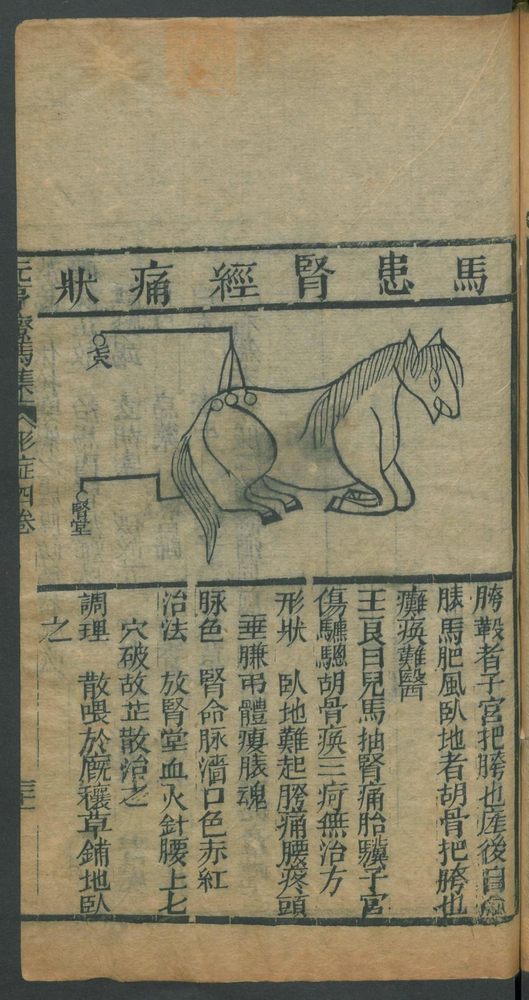 馬患腎經痛狀
七穴
腎堂
胯𩋾者子宮把胯也産後自愈
膁馬肥風臥地者胡骨把胯也
癱瘓難醫
王良曰兒馬抽腎痛胎驥子宮
傷驢騘胡骨瘓三疴無治方
形狀 臥地難起胯痛腰疼頭
垂膁弔體瘦膁䰟
脉色 腎命脉濇口色赤紅
治法 放腎堂血火針腰上七
穴破故芷散治之
調理 散喂於廐穰草鋪地臥
之
元亨療馬集 形症四卷